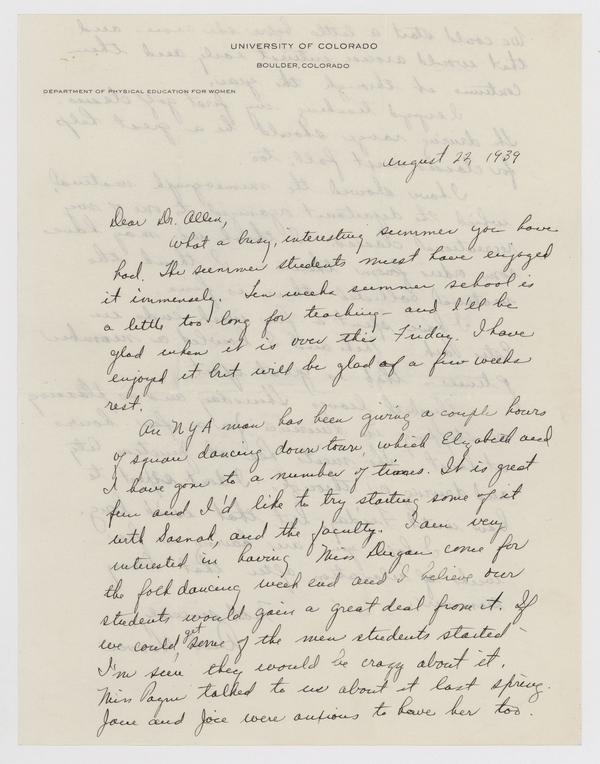 UNIVERSITY OF COLORADO
BOULDER, COLORADO
DEPARTMENT OF PHYSICAL EDUCATION FOR WOMEN
August 22, 1939
Dear Dr. Allen,
What a busy, interesting summer you have
had. The summer students must have enjoyed
it immensely. Ten weeks summer school is
a little too long for teaching - and I'll be
glad when it is over this Friday. I have
enjoyed it but will be glad of a few weeks
rest.
An NYA man has been giving a couple hours
of square dancing down town, which Elizabeth and
I have gone to a number of times. It is great
fun and I'd like to try starting some of it
with Sasnak, and the faculty. I am very
interested in having Miss Dugan come for
the folk dancing week end and I believe our
students would gain a great deal from it. If
we could get some of the men students started -
I'm sure they would be crazy about it.
Miss Payne talked to us about it last spring.
Jane and Joie were anxious to have her too.